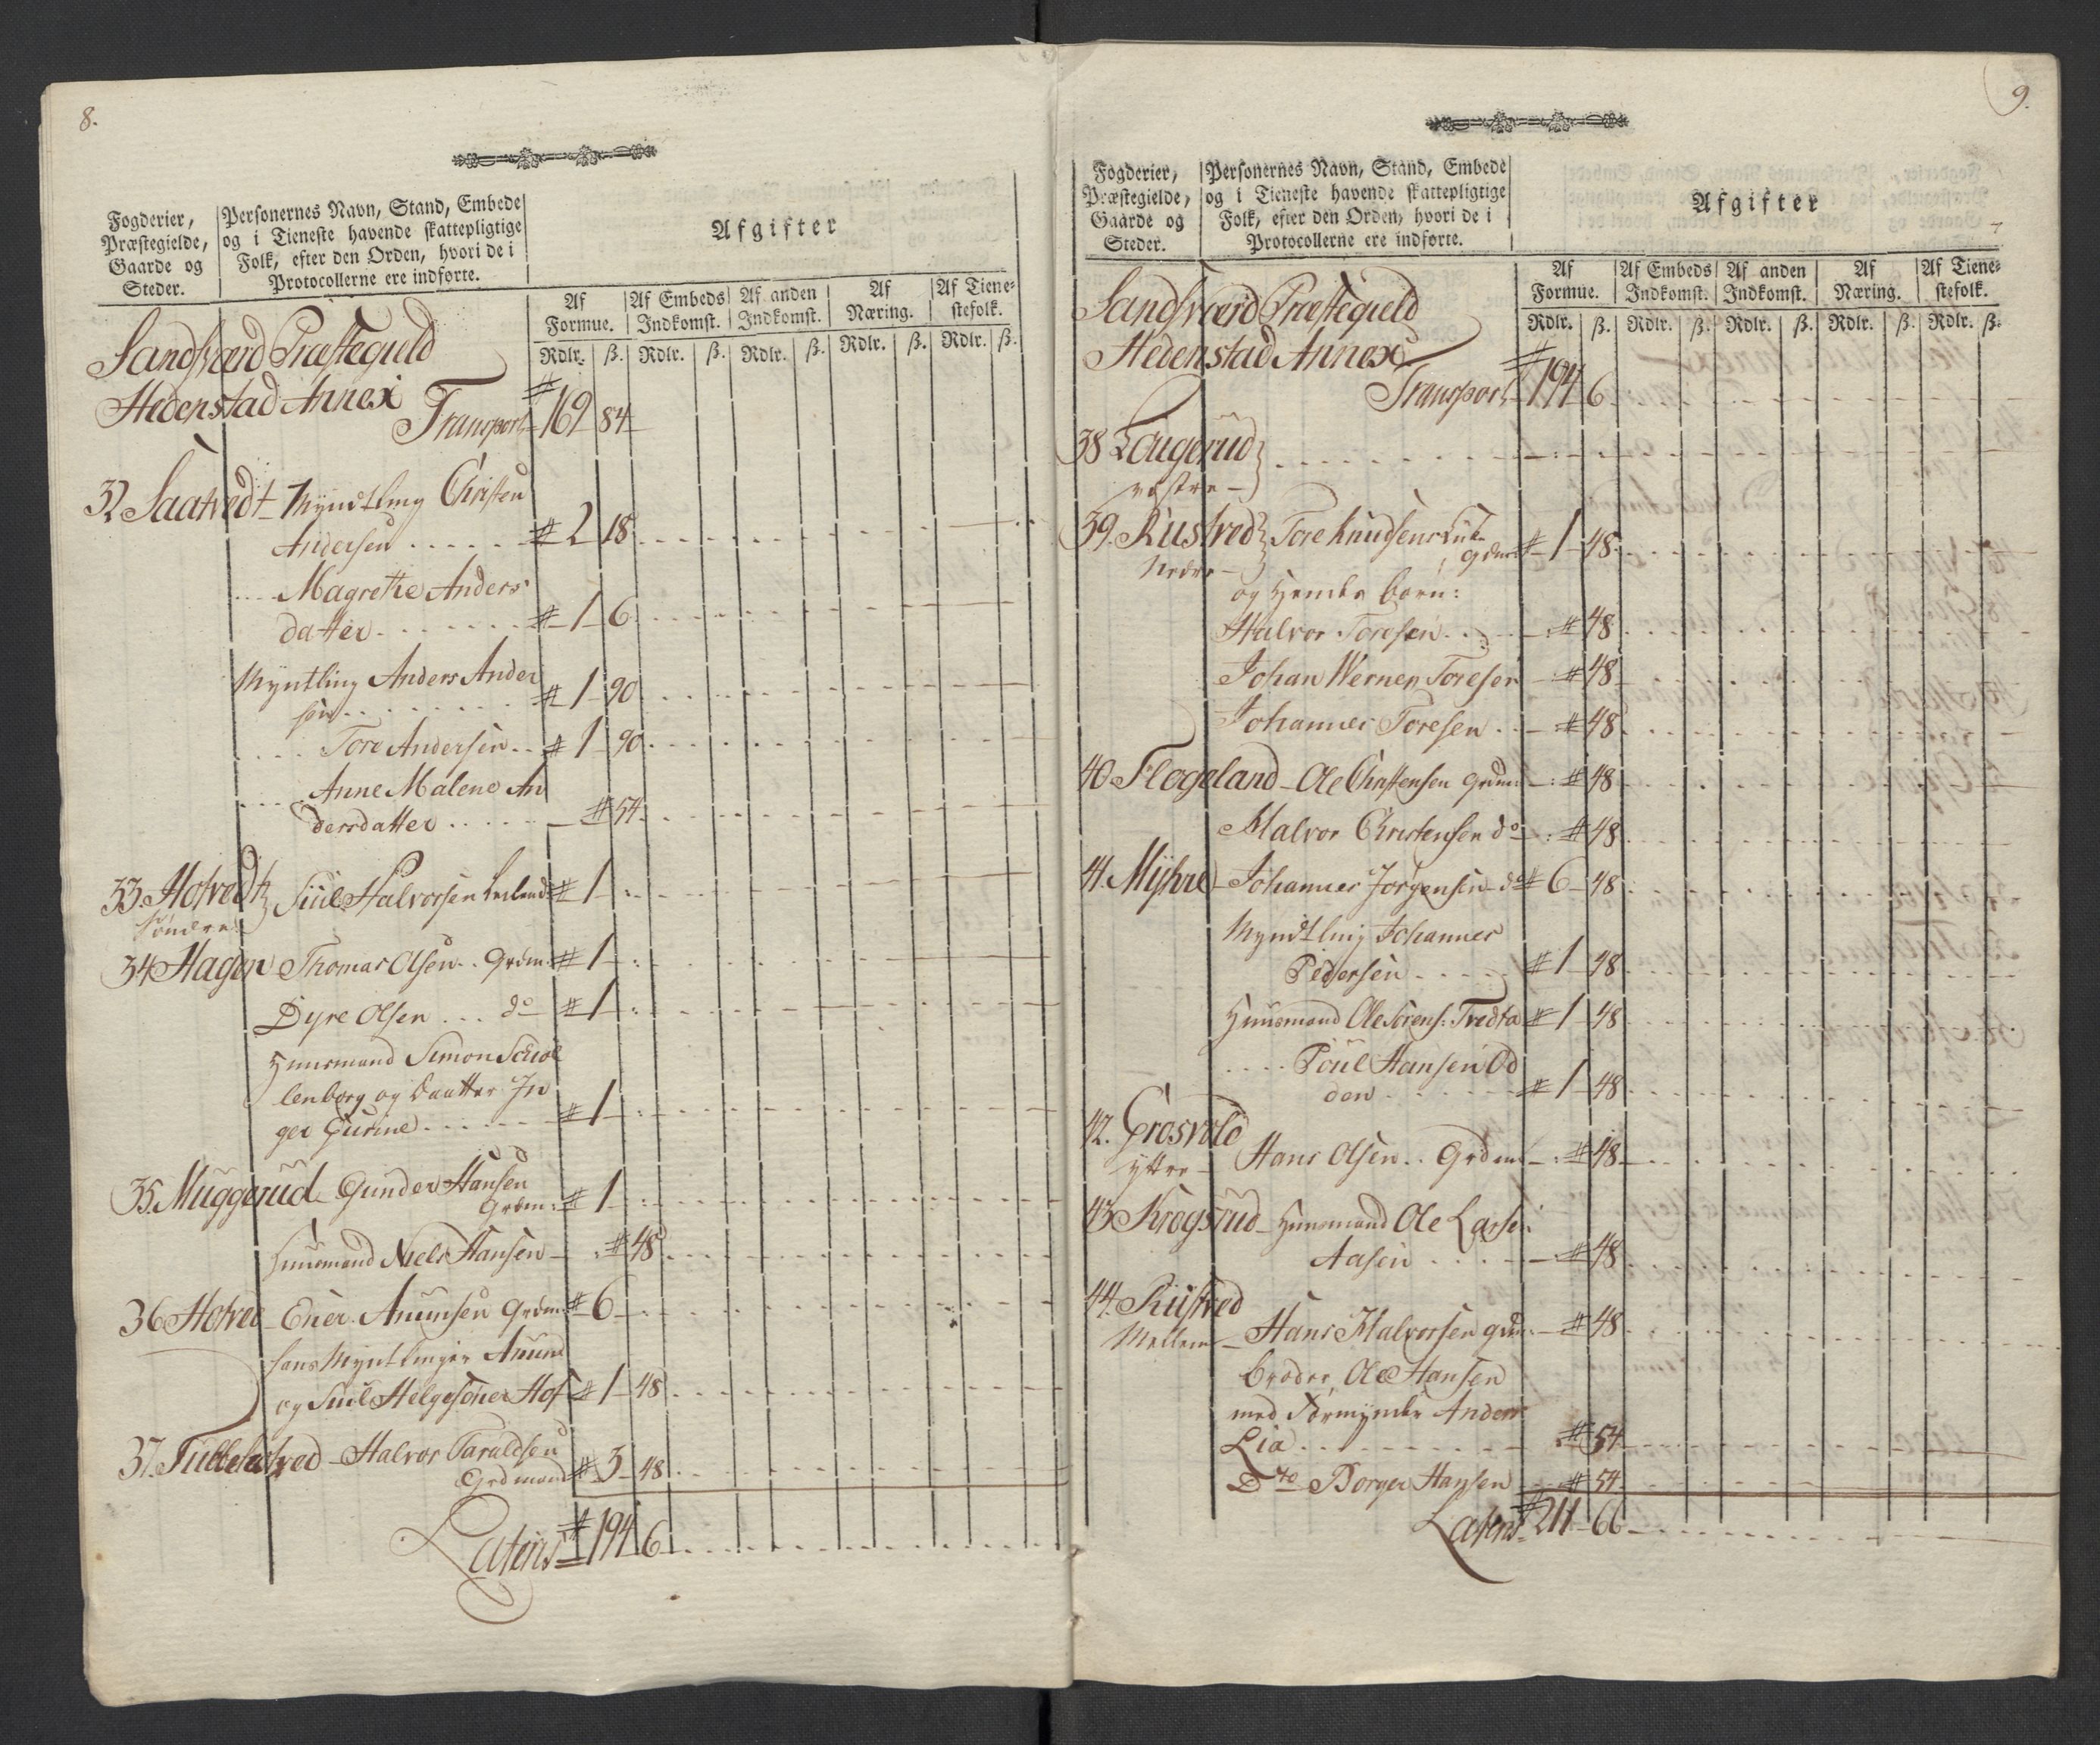 8.
Fogderier,
Præstegielde,
Gaarde og
Steder.
Personernes Navn, Stand, Embede
og i Tieneste havende skattepligtige
Folk, efter den Orden, hvori de i
Protocollerne ere indførte.
Afgifter
Af Formue. Af Embeds Indkomst. Af anden Indkomst. Af Næring. Af Tienestefolk.
Rdlr. ß. Rdlr. ß. Rdlr. ß. Rdlr. ß. Rdlr. ß.
Sandsværd Præstegield
Hedenstad Annex
Transport # 169 84
32 Saatvedt Myndtling Christen
Andersen # 2 18
Magrethe Anders
datter # 1 6
Myntling Anders Ander
sen # 1 90
Tore Andersen # 1 90
Anne Malene An
dersdatter # 54
33 Hofvedt Juul Halvorsen # 1
Søndre
34 Hagen Thomas Olsen Grdm # 1
Dyre Olsen do # 1
Huusmand Simon Schol
lenborg og Daatter In
ger Gurine # 1
35 Muggerud Gunder Hansen
Grdm: # 1
Huusmand Niels Hansen # 48
36 Hofved Ener Anunsen Grdm # 6
hans Myntlinger Anund
og Juul Helgesøner Hof # 1 48
37. Halvor Taraldsen
Grdmand # 3 48
Lateris # 194 6
9.
Fogderier,
Præstegielde,
Gaarde og
Steder.
Personernes Navn, Stand, Embede
og i Tieneste havende skattepligtige
Folk, efter den Orden, hvori de i
Protocollerne ere indførte.
Afgifter
Af Formue. Af Embeds Indkomst. Af anden Indkomst. Af Næring. Af Tienestefolk.
Rdlr. ß. Rdlr. ß. Rdlr. ß. Rdlr. ß. Rdlr. ß.
Sandsværd Præstegield
Hedenstad Annex
Transport # 194 6
38 Lougerud
vestre
39. Rustved Tore Knudsens # 1 48
Nedre
og Hendes børn:
Halvor Toresen # 48
Johan Werner Toresen # 48
Johannes Toresen # 48
40 Flogeland Ole Christensen Grdm # 48
Halvor Christensen do # 48
41. Myhre Johannes Jørgensen do # 6 48
Myndtling Johannes
Pedersen # 1 48
Huusmand Ole Sørens: Tredta # 1 48
Poul Hansen Od
den # 1 48
42. Grosvold
ÿttre Hans Olsen Grdm # 48
43 Krogsrud Huusmand Ole Larse:
Aasen # 48
44. Rustved
Mellem Hans Halvorsen Grdm # 48
broder, Ole Hansen
med Formynder Anders
Lia # 54
Dto Borger Hansen # 54
Lateris # 211 66